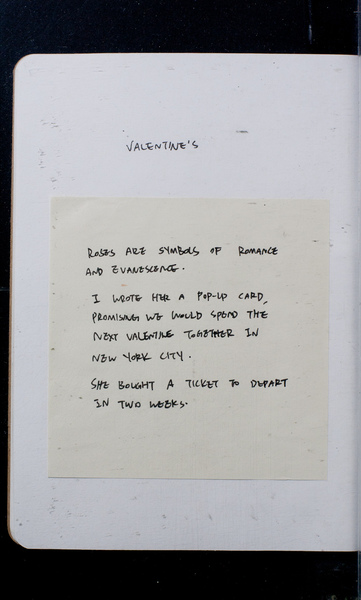 VALENTINE'S
ROSES ARE SYMBOLS OF ROMANCE
AND EVANESCENCE.
I WROTE HER A POP-UP CARD,
PROMISING WE WOULD SPEND THE
NEXT VALENTINE TOGETHER IN
NEW YORK CITY.
SHE BOUGHT A TICKET TO DEPART
IN TWO WEEKS.